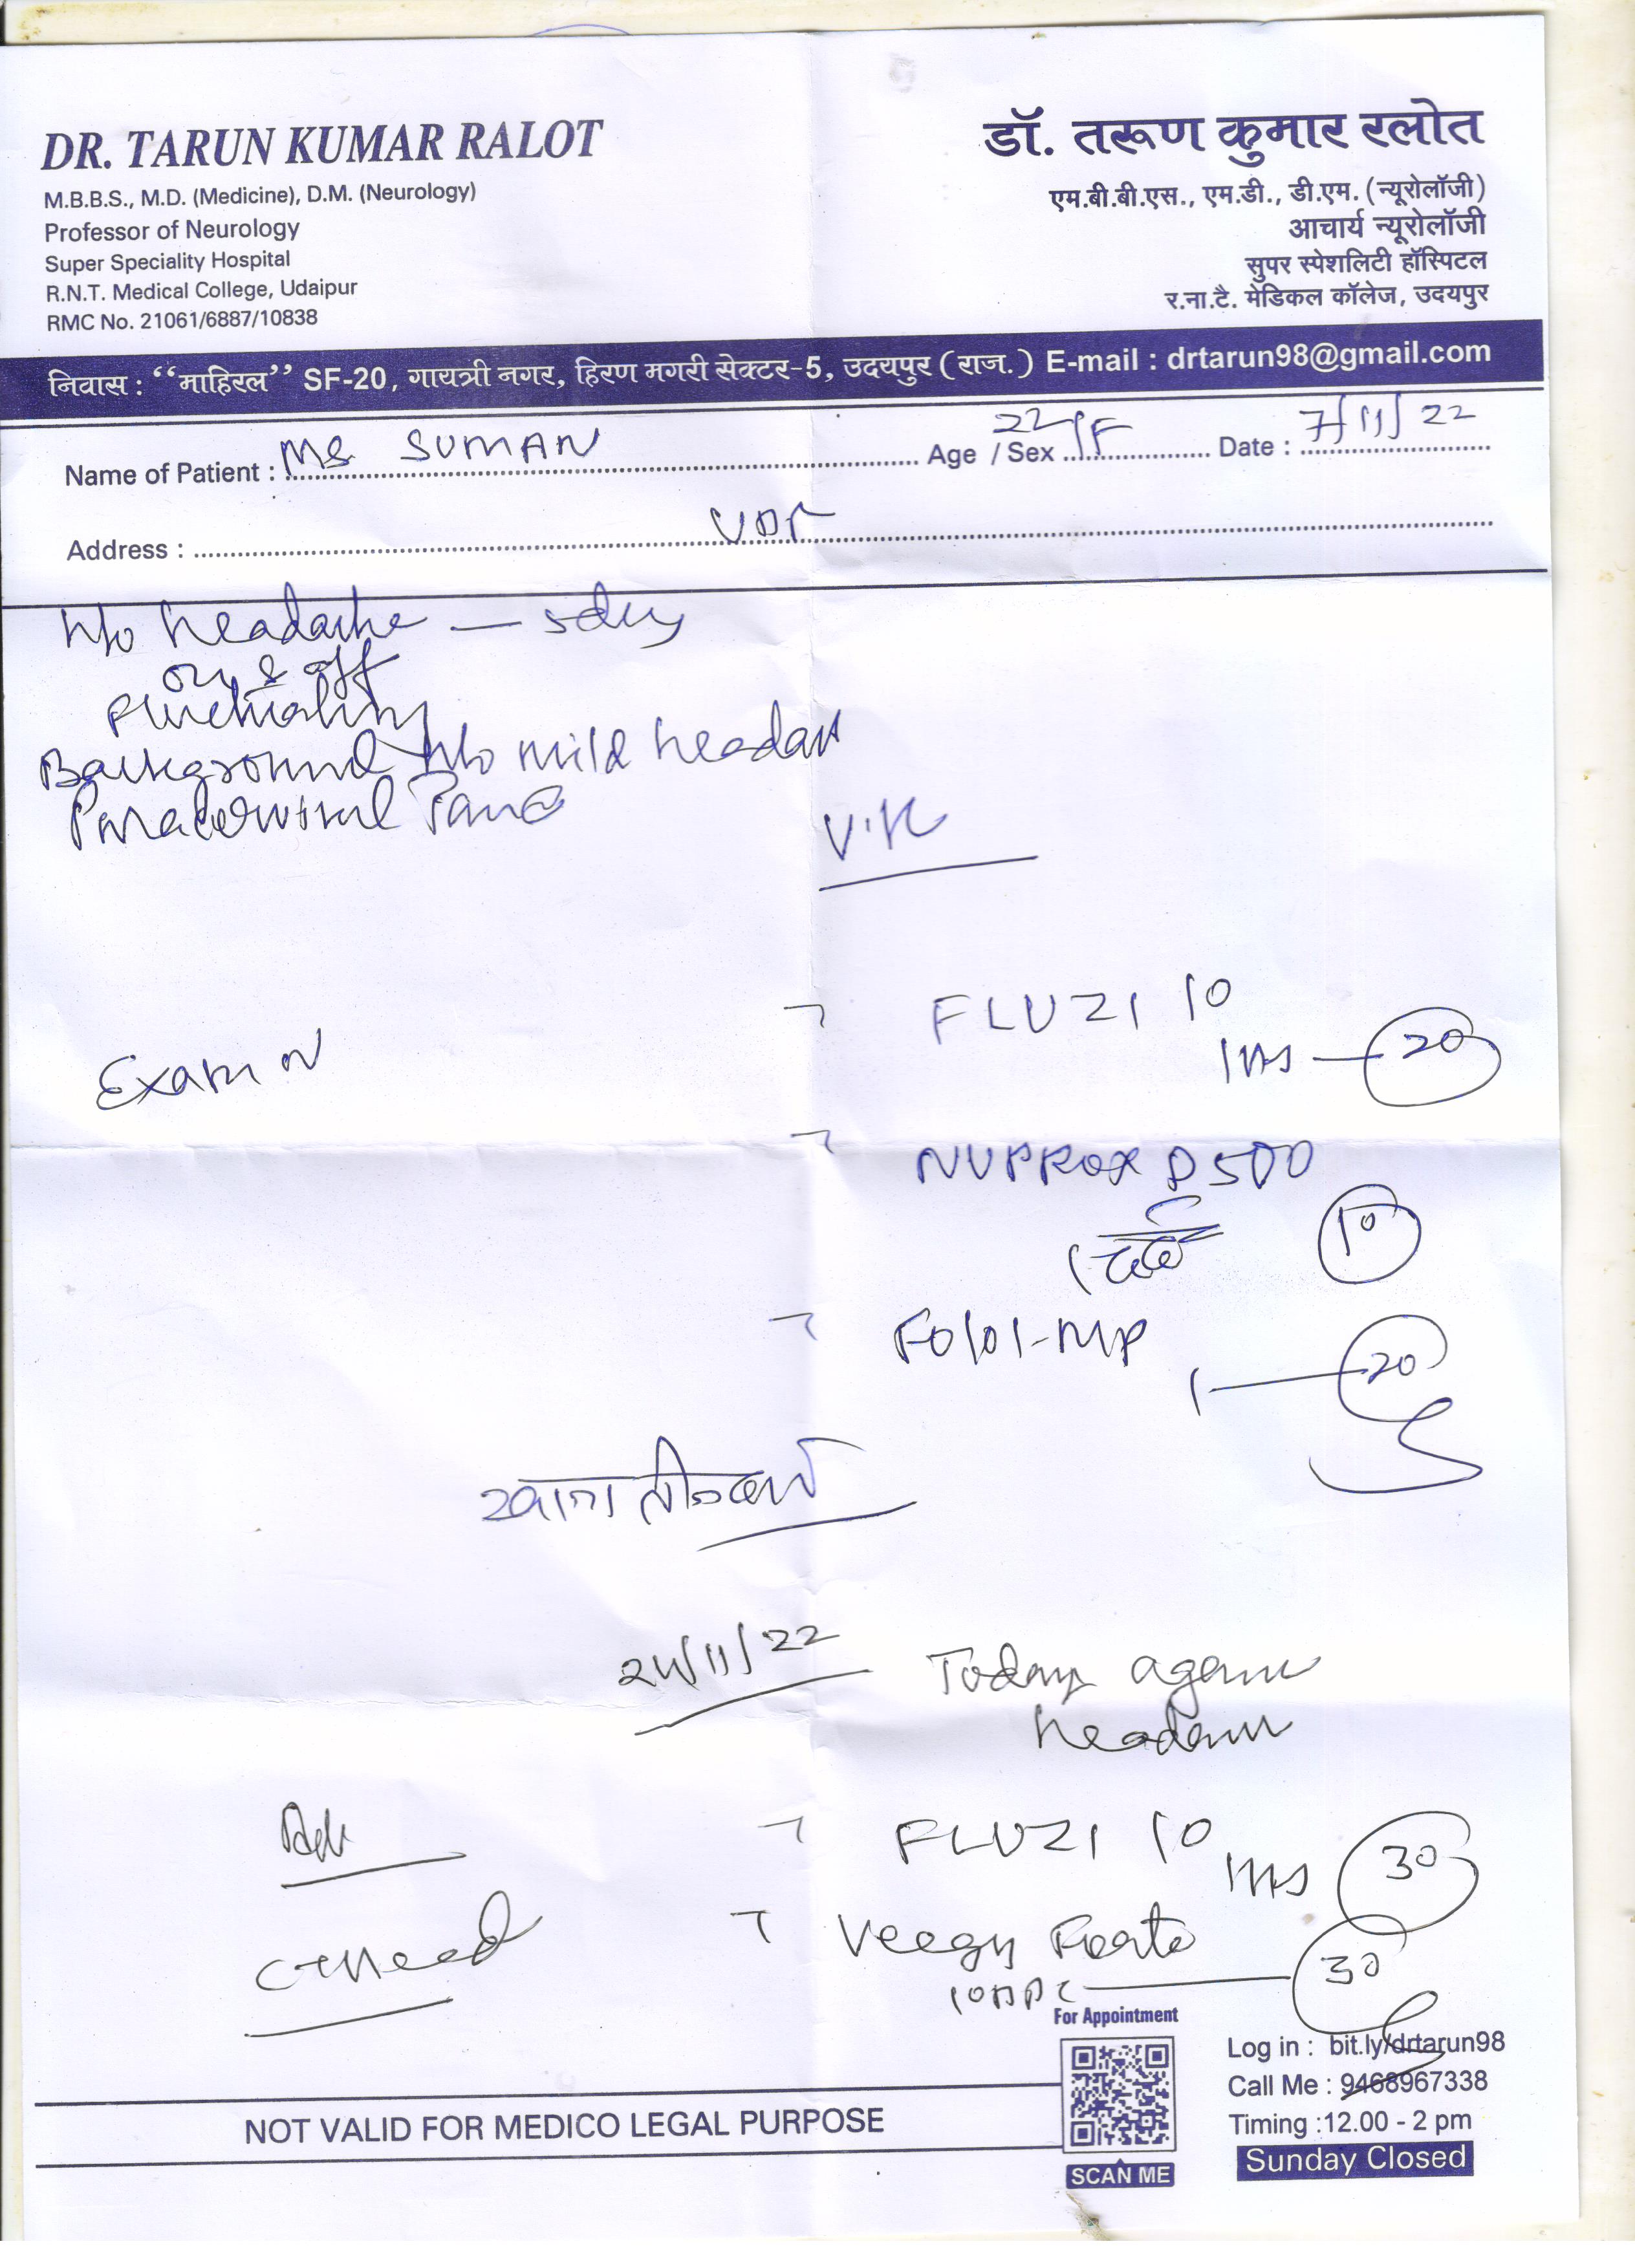 DR. TARUN KUMAR RALOT
M.B.B.S., M.D. (Medicine), D.M. (Neurology)
Professor of Neurology
Super Speciality Hospital
R.N.T. Medical College, Udaipur
RMC No. 21061/6887/10838
डॉ. तरूण कुमार रलोत
एम.बी.बी.एस., एम.डी., डी.एम. (न्यूरोलॉजी)
आचार्य न्यूरोलॉजी
सुपर स्पेशलिटी हॉस्पिटल
र.ना.टै. मेडिकल कॉलेज, उदयपुर
निवास : “माहिरल” SF-20, गायत्री नगर, हिरण मगरी सेक्टर-5, उदयपुर (राज.) E-mail : drtarun98@gmail.com
Name of Patient : Ms SUMAN Age / Sex 22/F Date : 7/11/22
Address : UDR
H/o headache — 5day
on & off
Background H/o mild headache
FLUZI 10
1 HS — 20
Exam N
NUPROX D 500
10
1 — 20
24/11/22 Today again
headache
Adv
FLUZI 10
1 HS 30
CT Head
Veegy Forte
30
For Appointment
SCAN ME
Log in : bit.ly/drtarun98
Call Me : 9468967338
Timing :12.00 - 2 pm
Sunday Closed
NOT VALID FOR MEDICO LEGAL PURPOSE